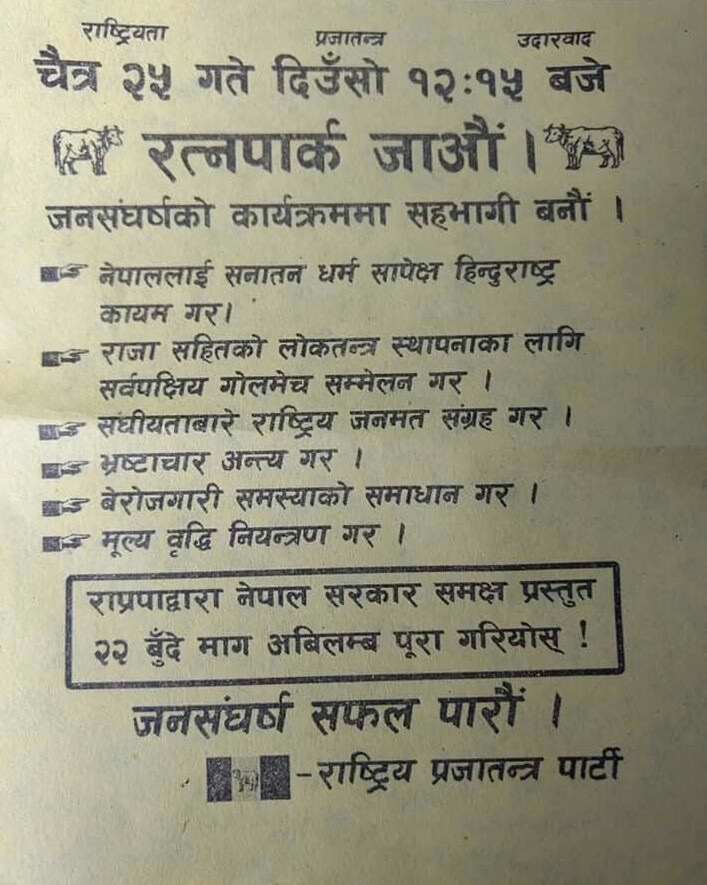 राष्ट्रियता प्रजातन्त्र उदारवाद
चैत्र २५ गते दिउँसो १२:१५ बजे
रत्नपार्क जाऔं ।
जनसंघर्षको कार्यक्रममा सहभागी बनौं ।
नेपाललाई सनातन धर्म सापेक्ष हिन्दुराष्ट्र
कायम गर।
राजा सहितको लोकतन्त्र स्थापनाका लागि
सर्वपक्षिय गोलमेच सम्मेलन गर ।
संघीयताबारे राष्ट्रिय जनमत संग्रह गर ।
भ्रष्टाचार अन्त्य गर ।
बेरोजगारी समस्याको समाधान गर ।
मूल्य वृद्धि नियन्त्रण गर ।
राप्रपाद्वारा नेपाल सरकार समक्ष प्रस्तुत
२२ बुँदे माग अबिलम्ब पूरा गरियोस् !
जनसंघर्ष सफल पारौं ।
-राष्ट्रिय प्रजातन्त्र पार्टी